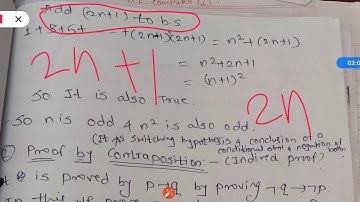 Add (2n+1) to b.s.
1+3+5+ +(2n-1)(2n+1) = n²+(2n+1)
= n²+2n+1
= (n+1)²
2n+1
So it is also True.
2n
So n is odd & n² is also odd.
(It is switching hypothesis & conclusion of a
conditional stmt & negation of both)
Proof by Contraposition:- (Indirect proof)
It is proved by p→q by proving ¬q→¬p.
In this
03:0